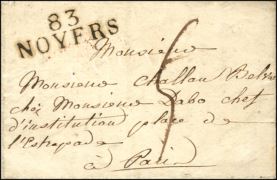 83
NOYERS
Monsieur
Monsieur Challan Belval
chéz Monsieur Dabo chef
d'institution place de
l'Estrapade
a Paris